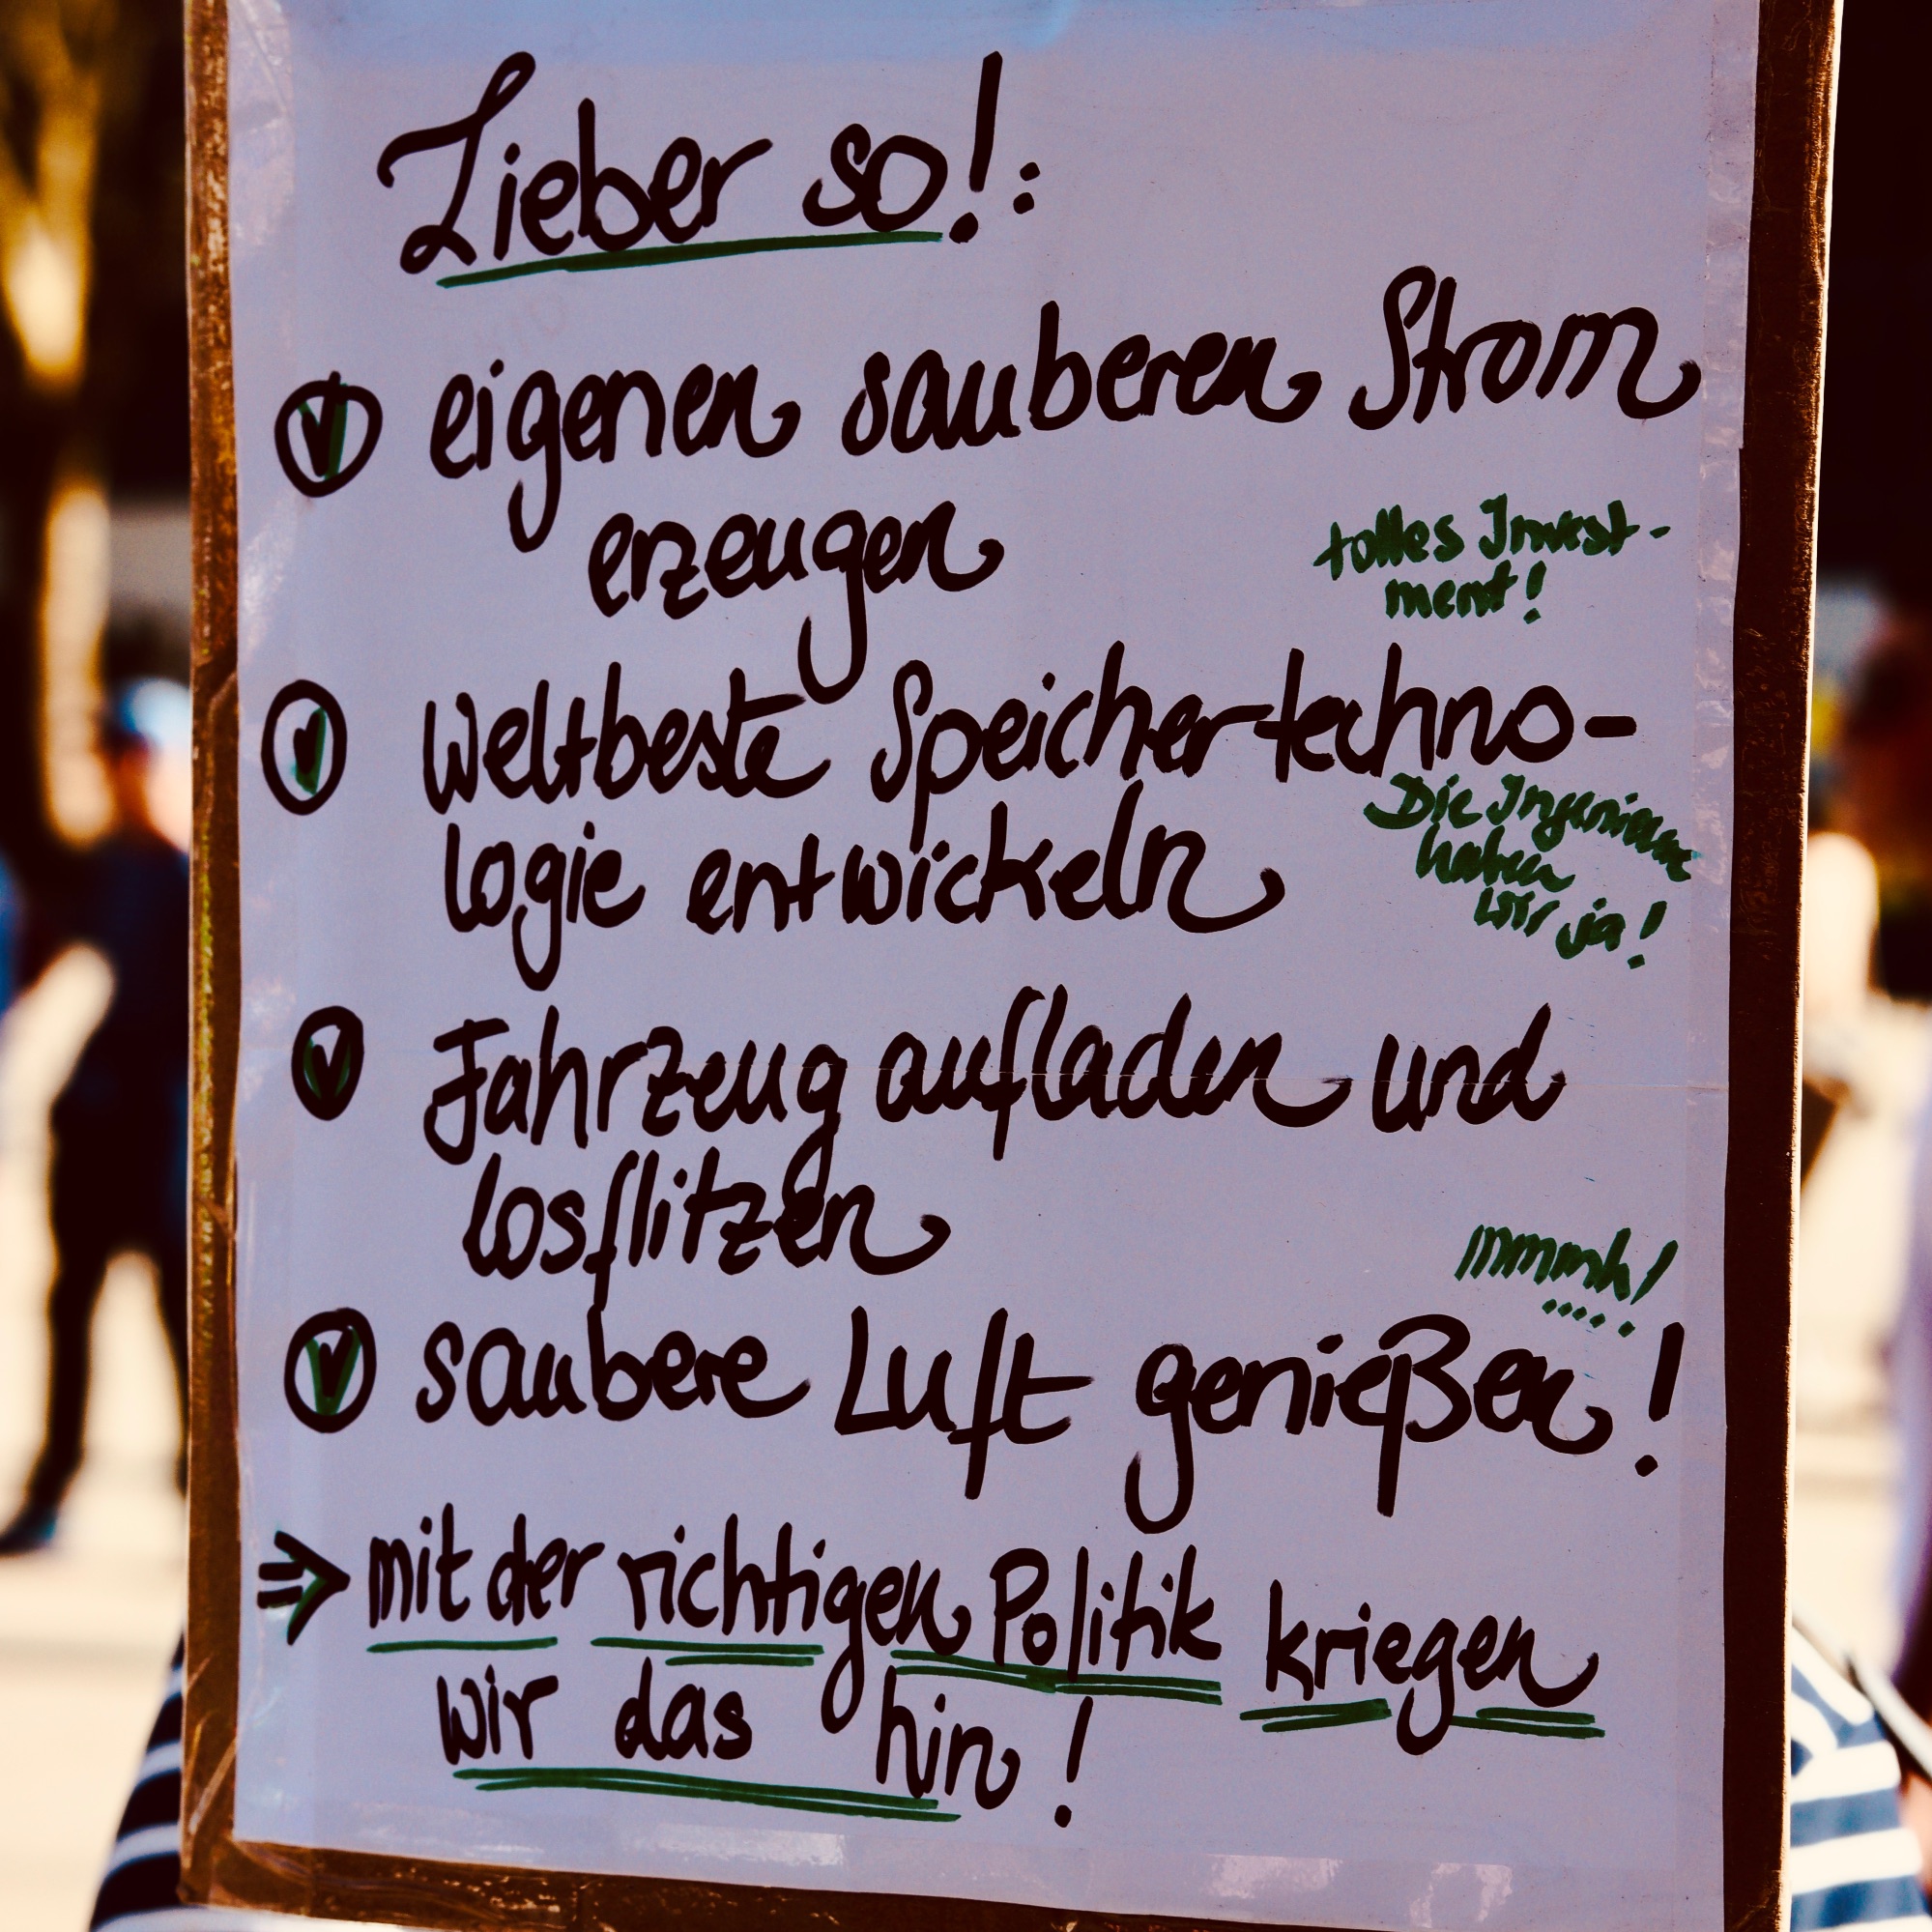 Lieber so!:
eigenen sauberen Strom
erzeugen
tolles Invest-
ment!
Weltbeste Speichertechno-
logie entwickeln
Die Ingenieure
haben
wir ja!
Fahrzeug aufladen und
losflitzen
mmmh!
saubere Luft genießen!
⇒ mit der richtigen Politik kriegen
wir das hin!